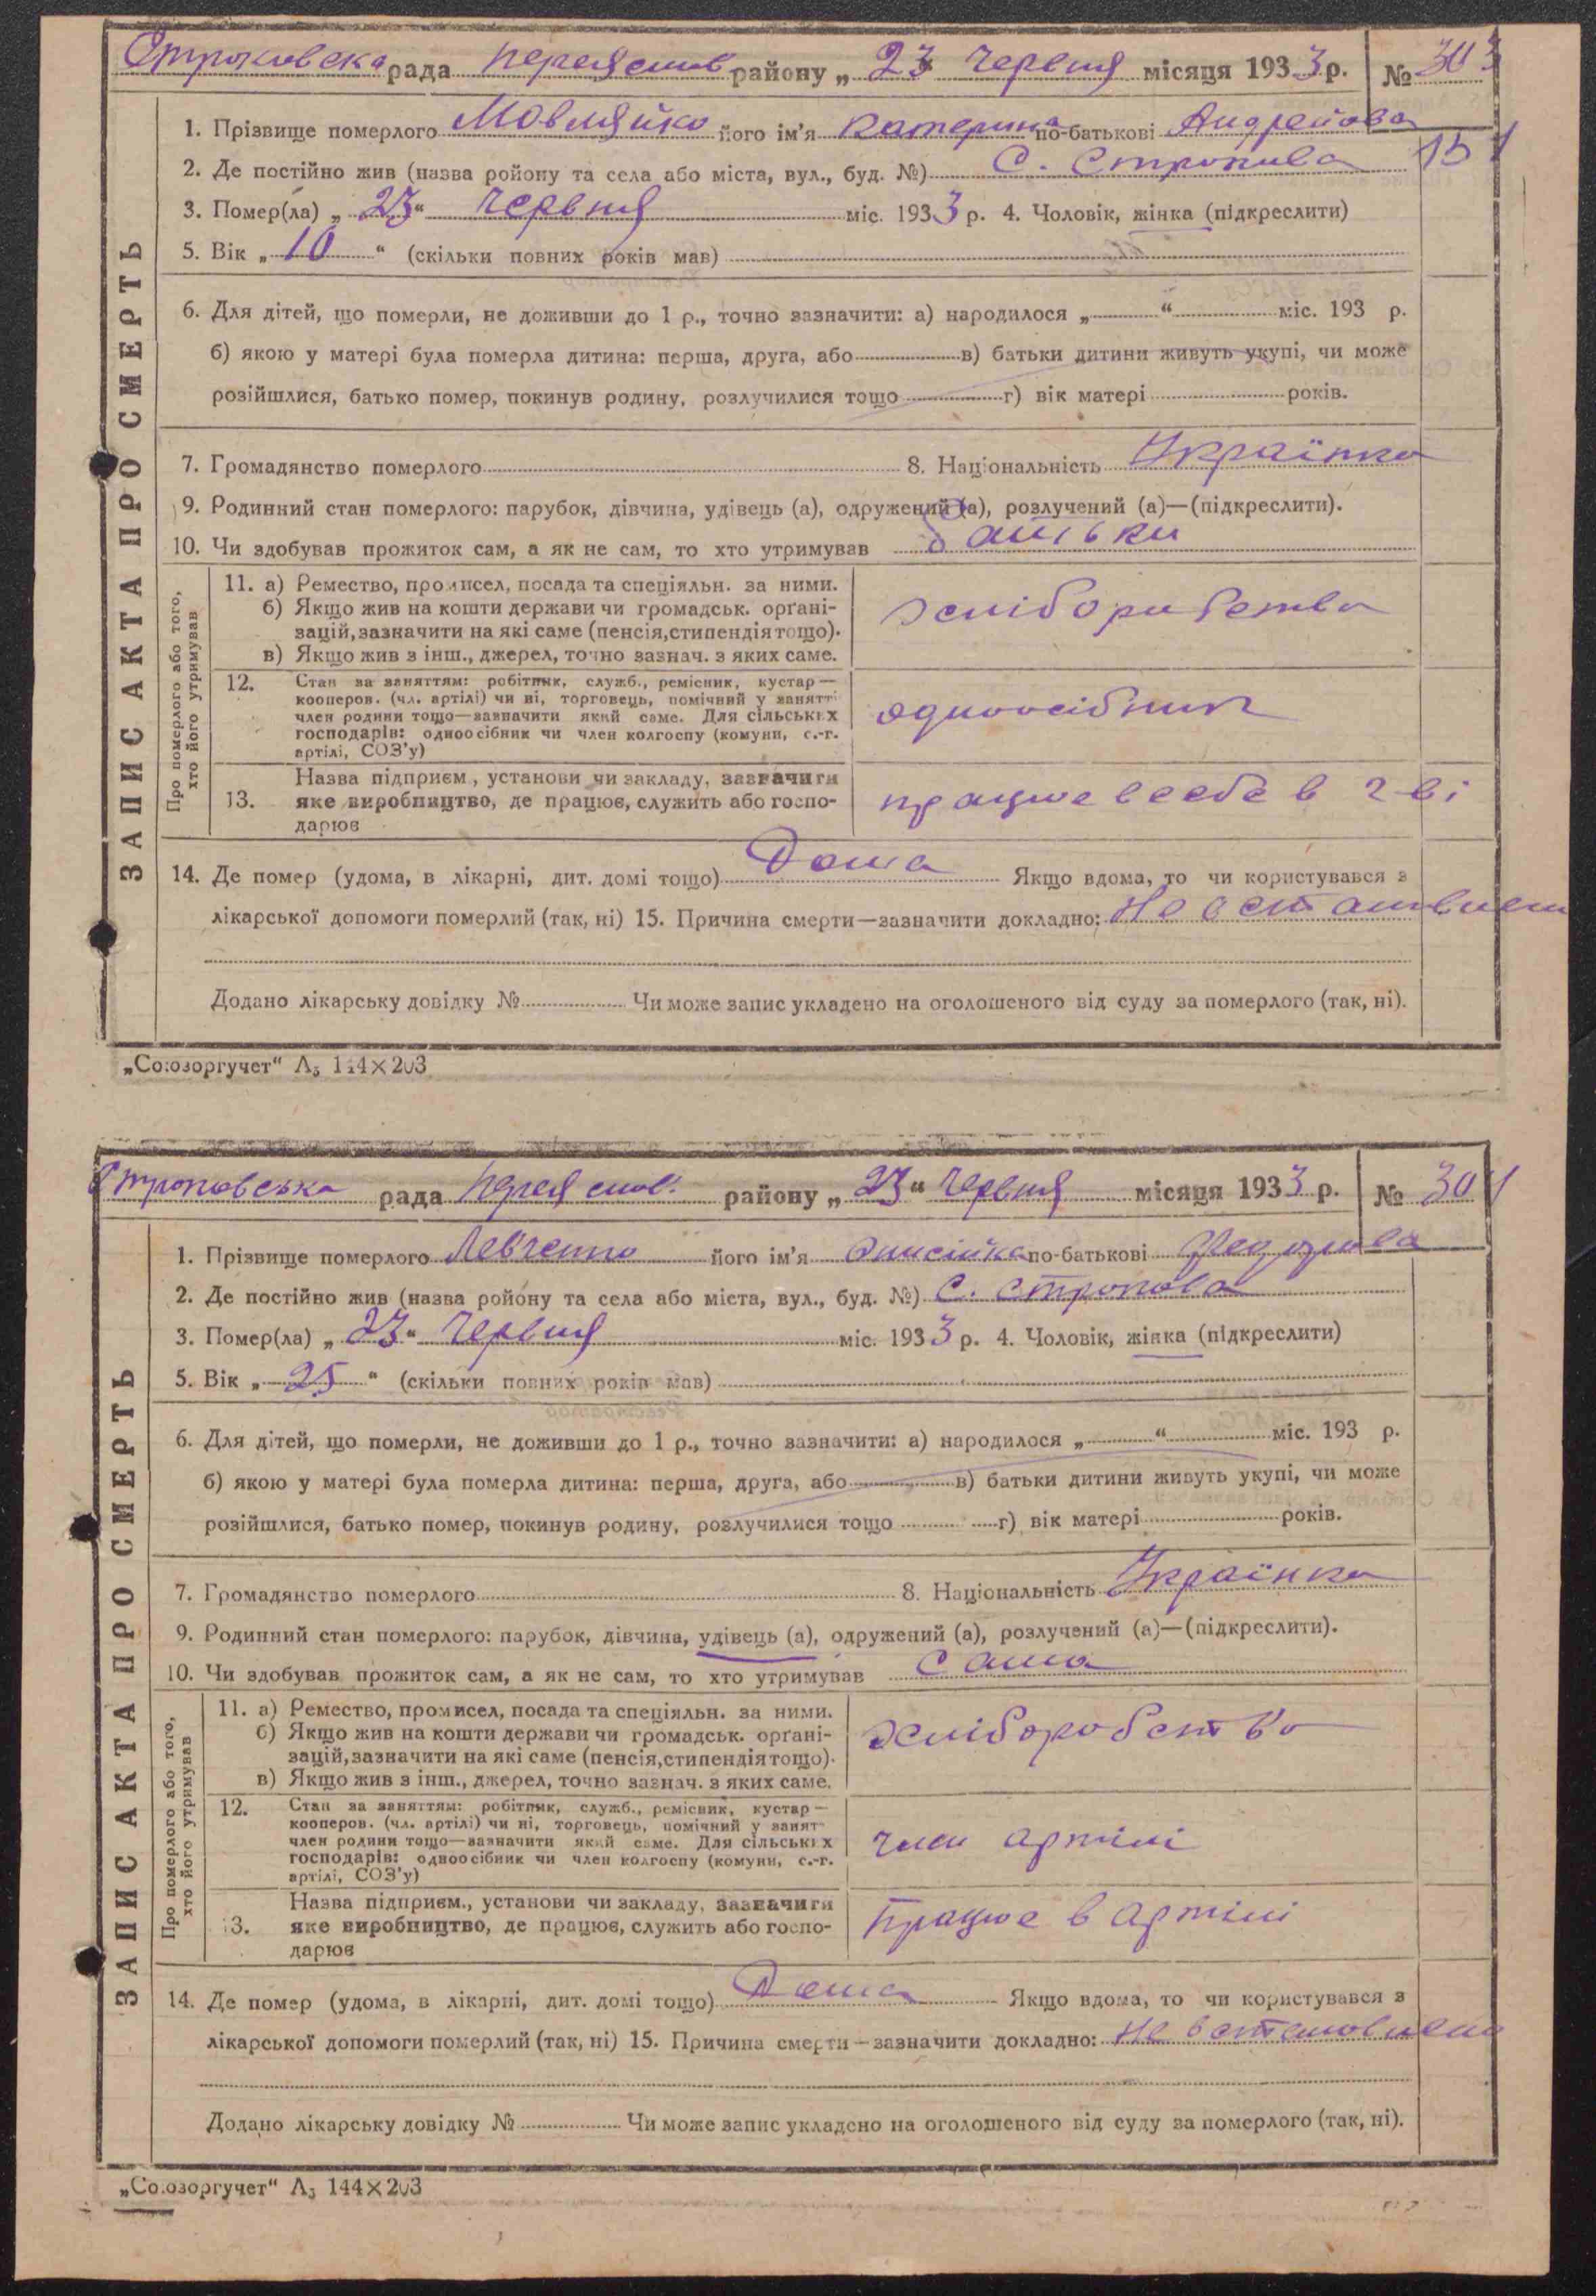 Строковська рада Переяслав району „ 23 червня місяця 1933 р. № 303
1. Прізвище померлого Мовляйко його ім'я Катерина по-батькові Андрейова
2. Де постійно жив (назва ройону та села або міста, вул., буд. №) С. Строкова 151
3. Помер(ла) „ 23 “ Червня міс. 1933 р. 4. Чоловік, жінка (підкреслити)
5. Вік „ 10 “ (скільки повних років мав)
6. Для дітей, що померли, не доживши до 1 р., точно зазначити: а) народилося „ “ міс. 193 р.
б) якою у матері була померла дитина: перша, друга, або в) батьки дитини живуть укупі, чи може
розійшлися, батько помер, покинув родину, розлучилися тощо г) вік матері років.
7. Громадянство померлого 8. Національність Українка
9. Родинний стан померлого: парубок, дівчина, удівець (а), одружений (а), розлучений (а)—(підкреслити).
10. Чи здобував прожиток сам, а як не сам, то хто утримував батьки
Про померлого або того, хто його утримував
11. а) Ремество, промисел, посада та спеціяльн. за ними.
б) Якщо жив на кошти держави чи громадськ. орґані-
зацій, зазначити на які саме (пенсія, стипендія тощо).
в) Якщо жив з інш., джерел, точно зазнач. з яких саме.
хліборобство
12. Стан за заняттям: робітник, служб., ремісник, кустар —
кооперов. (чл. артілі) чи ні, торговець, помічний у занятті
член родини тощо—зазначити який саме. Для сільських
господарів: одноосібник чи член колгоспу (комуни, с.-г.
артілі, СОЗ'у)
одноосібник
13. Назва підприєм., установи чи закладу, зазначити
яке виробництво, де працює, служить або госпо-
дарює
працює в себе в г-ві
14. Де помер (удома, в лікарні, дит. домі тощо) Дома Якщо вдома, то чи користувався з
лікарської допомоги померлий (так, ні) 15. Причина смерти—зазначити докладно: Не встановлен
Додано лікарську довідку № Чи може запис укладено на оголошеного від суду за померлого (так, ні).
ЗАПИС АКТА ПРО СМЕРТЬ
„Союзоргучет“ А₅ 144×203
Строковська рада Переяслов. району „ 23 “ червня місяця 1933 р. № 304
1. Прізвище померлого Левченко його ім'я Онисійка по-батькові Федорова
2. Де постійно жив (назва ройону та села або міста, вул., буд. №) С. Строкова
3. Помер(ла) „ 23 “ Червня міс. 1933 р. 4. Чоловік, жінка (підкреслити)
5. Вік „ 25 “ (скільки повних років мав)
6. Для дітей, що померли, не доживши до 1 р., точно зазначити: а) народилося „ “ міс. 193 р.
б) якою у матері була померла дитина: перша, друга, або в) батьки дитини живуть укупі, чи може
розійшлися, батько помер, покинув родину, розлучилися тощо г) вік матері років.
7. Громадянство померлого 8. Національність Українка
9. Родинний стан померлого: парубок, дівчина, удівець (а), одружений (а), розлучений (а)—(підкреслити).
10. Чи здобував прожиток сам, а як не сам, то хто утримував сама
Про померлого або того, хто його утримував
11. а) Ремество, промисел, посада та спеціяльн. за ними.
б) Якщо жив на кошти держави чи громадськ. орґані-
зацій, зазначити на які саме (пенсія, стипендія тощо).
в) Якщо жив з інш., джерел, точно зазнач. з яких саме.
хліборобство
12. Стан за заняттям: робітник, служб., ремісник, кустар —
кооперов. (чл. артілі) чи ні, торговець, помічний у занят
член родини тощо—зазначити який саме. Для сільських
господарів: одноосібник чи член колгоспу (комуни, с.-г.
артілі, СОЗ'у)
член артілі
13. Назва підприєм., установи чи закладу, зазначити
яке виробництво, де працює, служить або госпо-
дарює
працює в артілі
14. Де помер (удома, в лікарні, дит. домі тощо) Дома Якщо вдома, то чи користувався з
лікарської допомоги померлий (так, ні) 15. Причина смерти—зазначити докладно: не встановлено
Додано лікарську довідку № Чи може запис укладено на оголошеного від суду за померлого (так, ні).
ЗАПИС АКТА ПРО СМЕРТЬ
„Союзоргучет“ А₅ 144×203